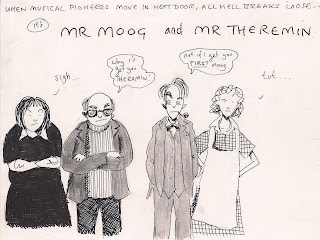 WHEN MUSICAL PIONEERS MOVE IN NEXT DOOR, ALL HELL BREAKS LOOSE...
IT'S
MR MOOG and MR THEREMIN
sigh...
Why I'll
get you
THERAMIN!
not if I get you
FIRST moog
tut....